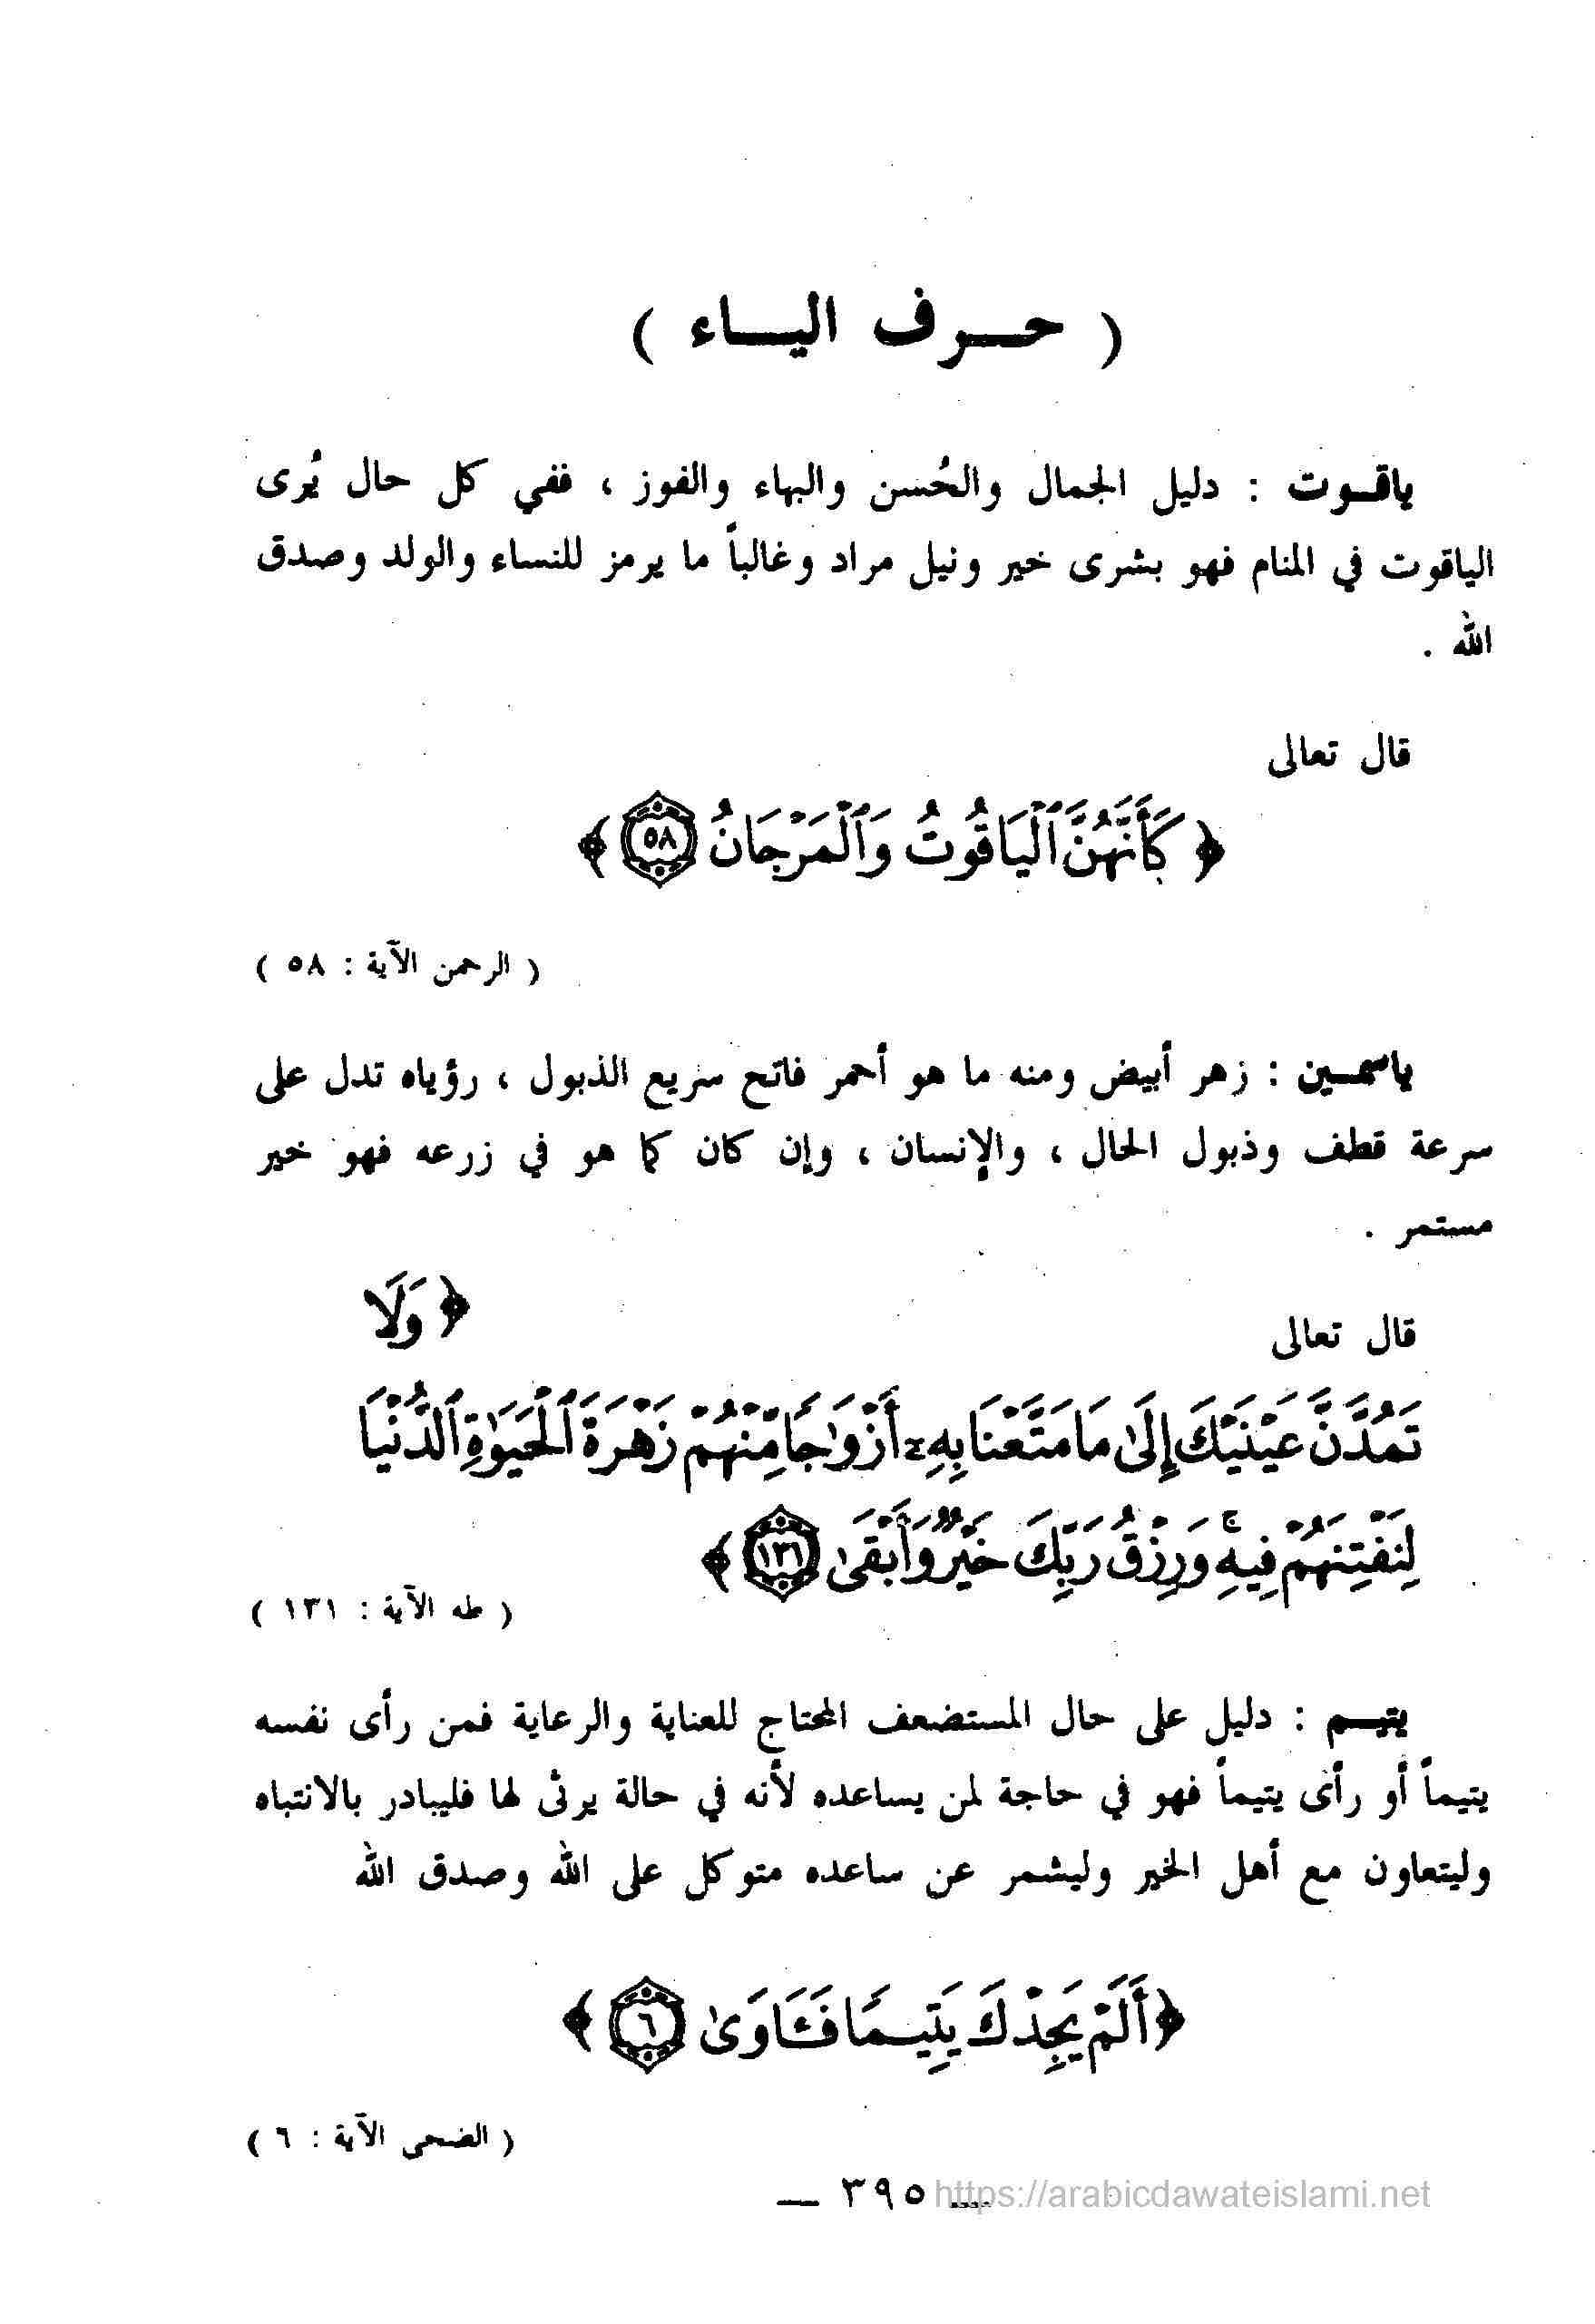 ( حرف الياء )
ياقوت : دليل الجمال والحُسن والبهاء والفوز ، ففي كل حال يُرى
الياقوت في المنام فهو بشرى خير ونيل مراد وغالباً ما يرمز للنساء والولد وصدق
الله .
قال تعالى
﴿ كَأَنَّهُنَّ ٱلْيَاقُوتُ وَٱلْمَرْجَانُ ٥٨ ﴾
( الرحمن الآية : ٥٨ )
ياسمين : زهر أبيض ومنه ما هو أحمر فاتح سريع الذبول ، رؤياه تدل على
سرعة قطف وذبول الحال ، والإنسان ، وإن كان كما هو في زرعه فهو خير
مستمر .
قال تعالى ﴿ وَلَا
تَمُدَّنَّ عَيْنَيْكَ إِلَىٰ مَا مَتَّعْنَا بِهِۦٓ أَزْوَٰجًا مِّنْهُمْ زَهْرَةَ ٱلْحَيَوٰةِ ٱلدُّنْيَا
لِنَفْتِنَهُمْ فِيهِ ۚ وَرِزْقُ رَبِّكَ خَيْرٌ وَأَبْقَىٰ ١٣١ ﴾
( طه الآية : ١٣١ )
يتيم : دليل على حال المستضعف المحتاج للعناية والرعاية فمن رأى نفسه
يتيماً أو رأى يتيماً فهو في حاجة لمن يساعده لأنه في حالة يرثى لها فليبادر بالانتباه
وليتعاون مع أهل الخير وليشمر عن ساعده متوكل على الله وصدق الله
﴿ أَلَمْ يَجِدْكَ يَتِيمًا فَـَٔاوَىٰ ٦ ﴾
( الضحى الآية : ٦ )
— ٣٩٥ —
https://arabicdawateislami.net